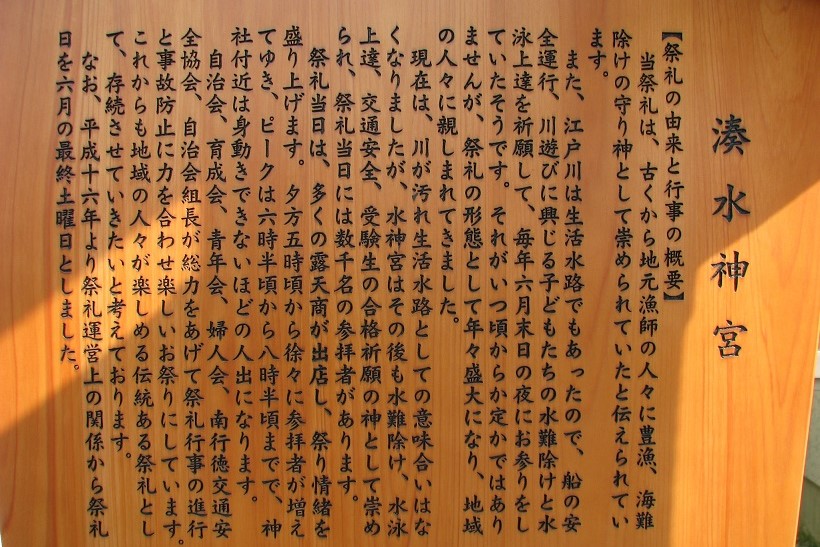 湊水神宮
【祭礼の由来と行事の概要】
　当祭礼は、古くから地元漁師の人々に豊漁、海難
除けの守り神として崇められていたと伝えられてい
ます。
　また、江戸川は生活水路でもあったので、船の安
全運行、川遊びに興じる子どもたちの水難除けと水
泳上達を祈願して、毎年六月末日の夜にお参りをし
ていたそうです。それがいつ頃からか定かではあり
ませんが、祭礼の形態として年々盛大になり、地域
の人々に親しまれてきました。
　現在は、川が汚れ生活水路としての意味合いはな
くなりましたが、水神宮はその後も水難除け、水泳
上達、交通安全、受験生の合格祈願の神として崇め
られ、祭礼当日には数千名の参拝者があります。
　祭礼当日は、多くの露天商が出店し、祭り情緒を
盛り上げます。夕方五時頃から徐々に参拝者が増え
てゆき、ピークは六時半頃から八時半頃までで、神
社付近は身動きできないほどの人出になります。
　自治会、育成会、青年会、婦人会、南行徳交通安
全協会、自治会組長が総力をあげて祭礼行事の進行
と事故防止に力を合わせ楽しいお祭りにしています。
これからも地域の人々が楽しめる伝統ある祭礼とし
て、存続させていきたいと考えております。
　なお、平成十六年より祭礼運営上の関係から祭礼
日を六月の最終土曜日としました。